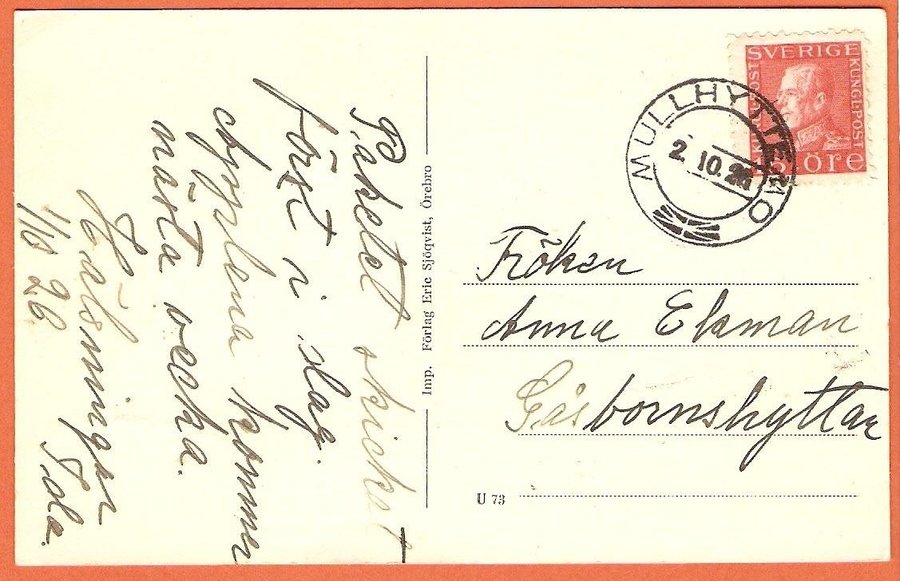 Paketet skickat
först i dag.
kommer
nästa vecka.
Hälsningar
1/10 26
Imp. Förlag Eric Sjöqvist, Örebro
SVERIGE
KUNGL·POST
öre
MULLHYTTEMO
2.10.26
Fröken
Anna Ekman
Gåsbornshyttan
U 73